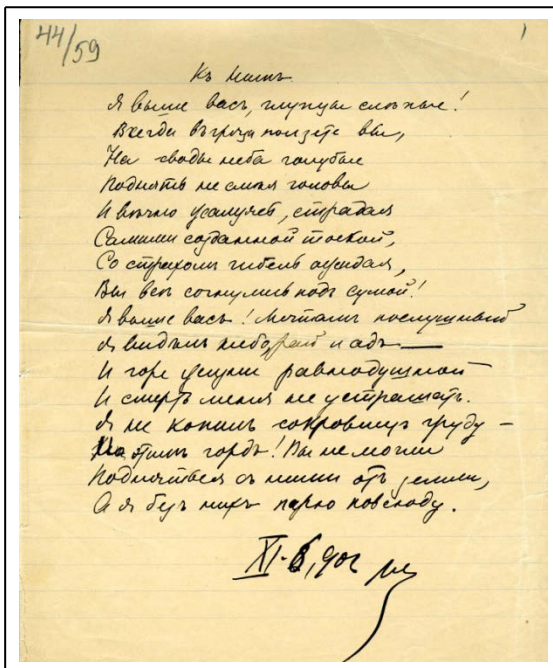 44/59
1
Къ нимъ
Я выше васъ, глупцы слѣпые!
Всегда въ грязи ползете вы,
На своды неба голубые
Поднять не смѣя головы
И вѣчно усалучев, страдая
Самими созданной тоской,
Со страхомъ гибель ожидая,
Вы всѣ согнулись подъ сумой!
Я выше васъ! Мечтамъ послушный
Я видѣлъ небо, рай и адъ —
И горе душѣ равнодушной
И смерть меня не устрашатъ.
Я не копилъ сокровищъ груду –
Но этимъ гордъ! Вы не могли
Подняться съ ними отъ земли,
А я безъ нихъ парю повсюду.
XI-6, 90г